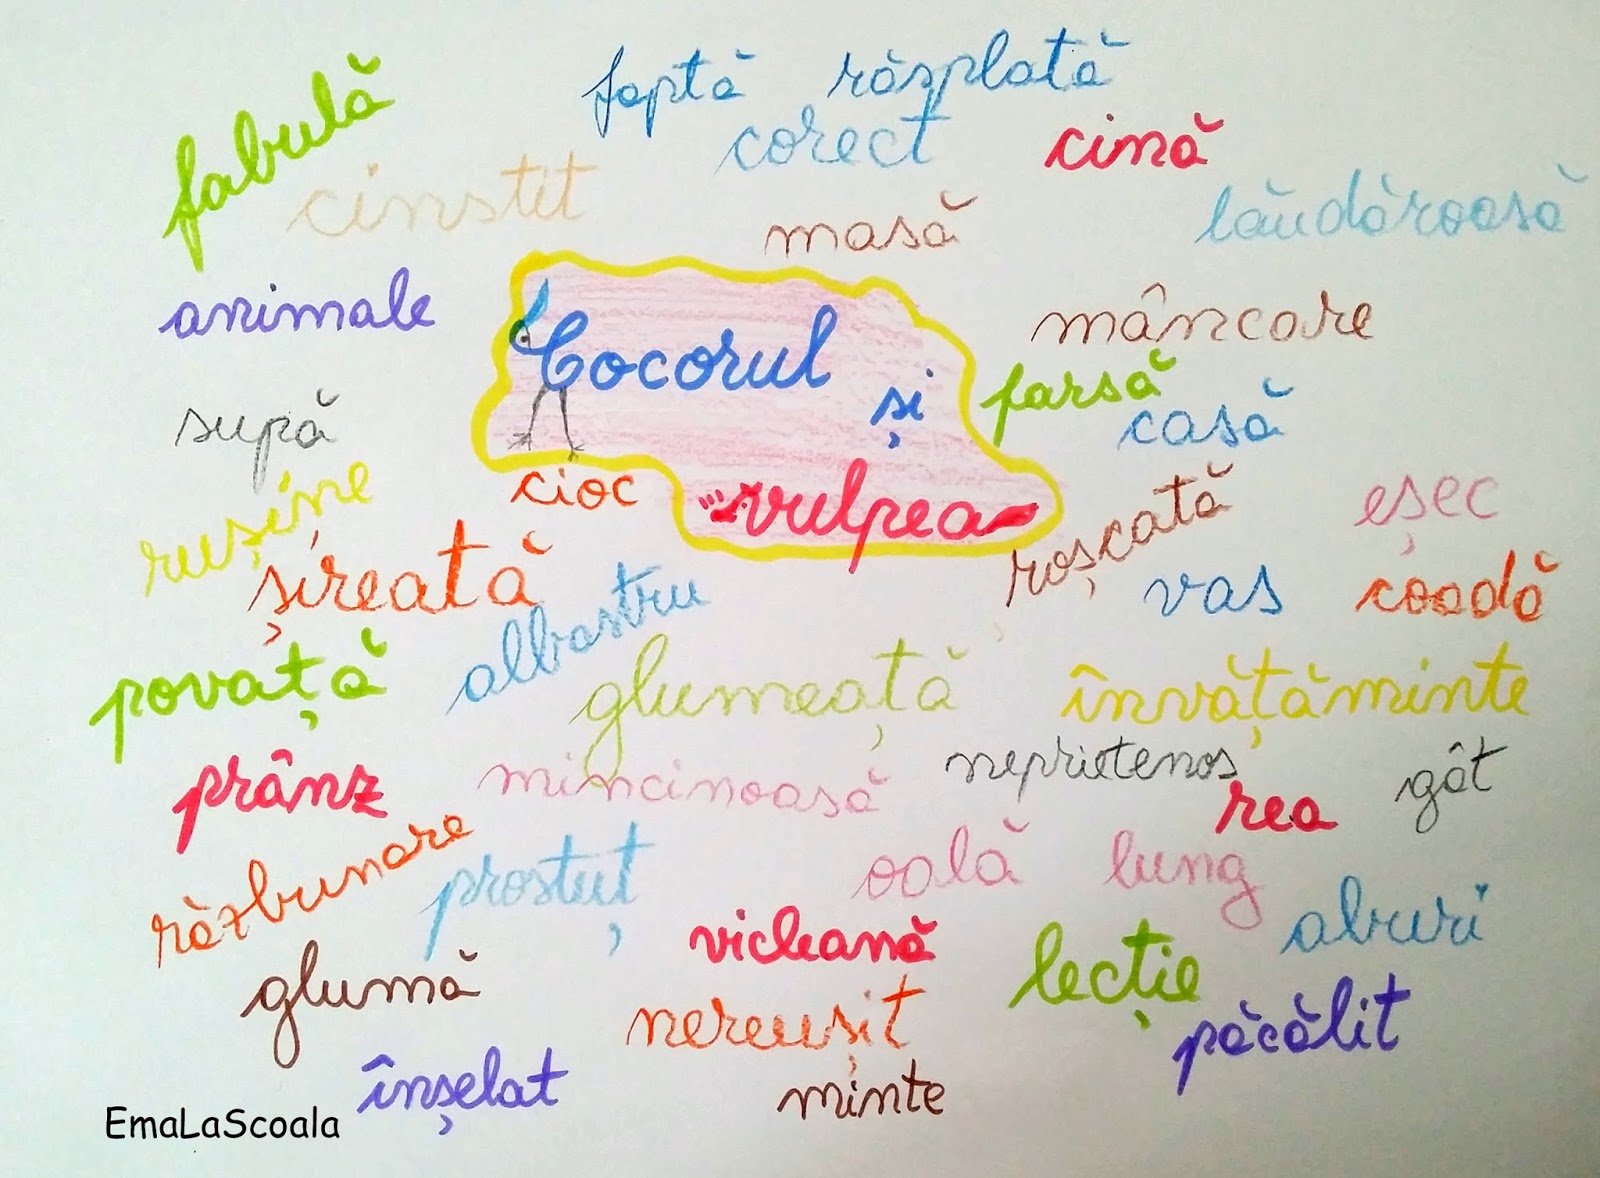 faptă răsplată
fabulă
corect
cină
cinstit
masă
lăudăroasă
animale
mâncare
Cocorul
și
vulpea
farsă
casă
supă
cioc
rușine
roșcată
eșec
șireată
albastru
vas
coadă
povață
glumeață
învățăminte
prânz
mincinoasă
neprietenos
gât
rea
răzbunare
prostuț
oală
lung
vicleană
aburi
glumă
lecție
nereușit
păcălit
înșelat
minte
EmaLaScoala